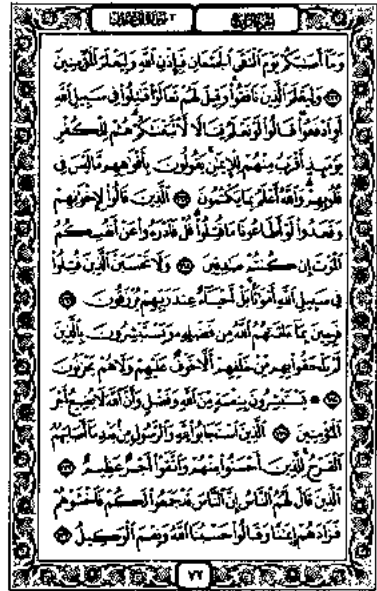 وَمَا أَصَابَكُمْ يَوْمَ الْتَقَى الْجَمْعَانِ فَبِإِذْنِ اللَّهِ وَلِيَعْلَمَ الْمُؤْمِنِينَ
وَلِيَعْلَمَ الَّذِينَ نَافَقُوا وَقِيلَ لَهُمْ تَعَالَوْا قَاتِلُوا فِي سَبِيلِ اللَّهِ
أَوِ ادْفَعُوا قَالُوا لَوْ نَعْلَمُ قِتَالًا لَّاتَّبَعْنَاكُمْ هُمْ لِلْكُفْرِ
يَوْمَئِذٍ أَقْرَبُ مِنْهُمْ لِلْإِيمَانِ يَقُولُونَ بِأَفْوَاهِهِم مَّا لَيْسَ فِي
قُلُوبِهِمْ وَاللَّهُ أَعْلَمُ بِمَا يَكْتُمُونَ ١٦٧ الَّذِينَ قَالُوا لِإِخْوَانِهِمْ
وَقَعَدُوا لَوْ أَطَاعُونَا مَا قُتِلُوا قُلْ فَادْرَءُوا عَنْ أَنفُسِكُمُ
الْمَوْتَ إِن كُنتُمْ صَادِقِينَ ١٦٨ وَلَا تَحْسَبَنَّ الَّذِينَ قُتِلُوا
فِي سَبِيلِ اللَّهِ أَمْوَاتًا بَلْ أَحْيَاءٌ عِندَ رَبِّهِمْ يُرْزَقُونَ ١٦٩
فَرِحِينَ بِمَا آتَاهُمُ اللَّهُ مِن فَضْلِهِ وَيَسْتَبْشِرُونَ بِالَّذِينَ
لَمْ يَلْحَقُوا بِهِم مِّنْ خَلْفِهِمْ أَلَّا خَوْفٌ عَلَيْهِمْ وَلَا هُمْ يَحْزَنُونَ
١٧٠ ۞ يَسْتَبْشِرُونَ بِنِعْمَةٍ مِّنَ اللَّهِ وَفَضْلٍ وَأَنَّ اللَّهَ لَا يُضِيعُ أَجْرَ
الْمُؤْمِنِينَ ١٧١ الَّذِينَ اسْتَجَابُوا لِلَّهِ وَالرَّسُولِ مِن بَعْدِ مَا أَصَابَهُمُ
الْقَرْحُ لِلَّذِينَ أَحْسَنُوا مِنْهُمْ وَاتَّقَوْا أَجْرٌ عَظِيمٌ ١٧٢
الَّذِينَ قَالَ لَهُمُ النَّاسُ إِنَّ النَّاسَ قَدْ جَمَعُوا لَكُمْ فَاخْشَوْهُمْ
فَزَادَهُمْ إِيمَانًا وَقَالُوا حَسْبُنَا اللَّهُ وَنِعْمَ الْوَكِيلُ ١٧٣
٧٢